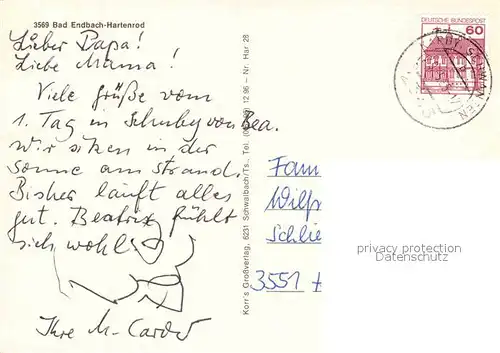 3569 Bad Endbach-Hartenrod
Lieber Papa!
Liebe Mama!
Viele Grüße vom
1. Tag in Schuby von Bea.
Wir sitzen in der
Sonne am Strand.
Bisher läuft alles
gut. Beatrix fühlt
sich wohl.
Ihre
Korr's Großverlag, 6231 Schwalbach/Ts., Tel. 12 96 – Nr. Har 28
DEUTSCHE BUNDESPOST
60
Fam
Wilf
Schlie
3551
privacy protection
Datenschutz